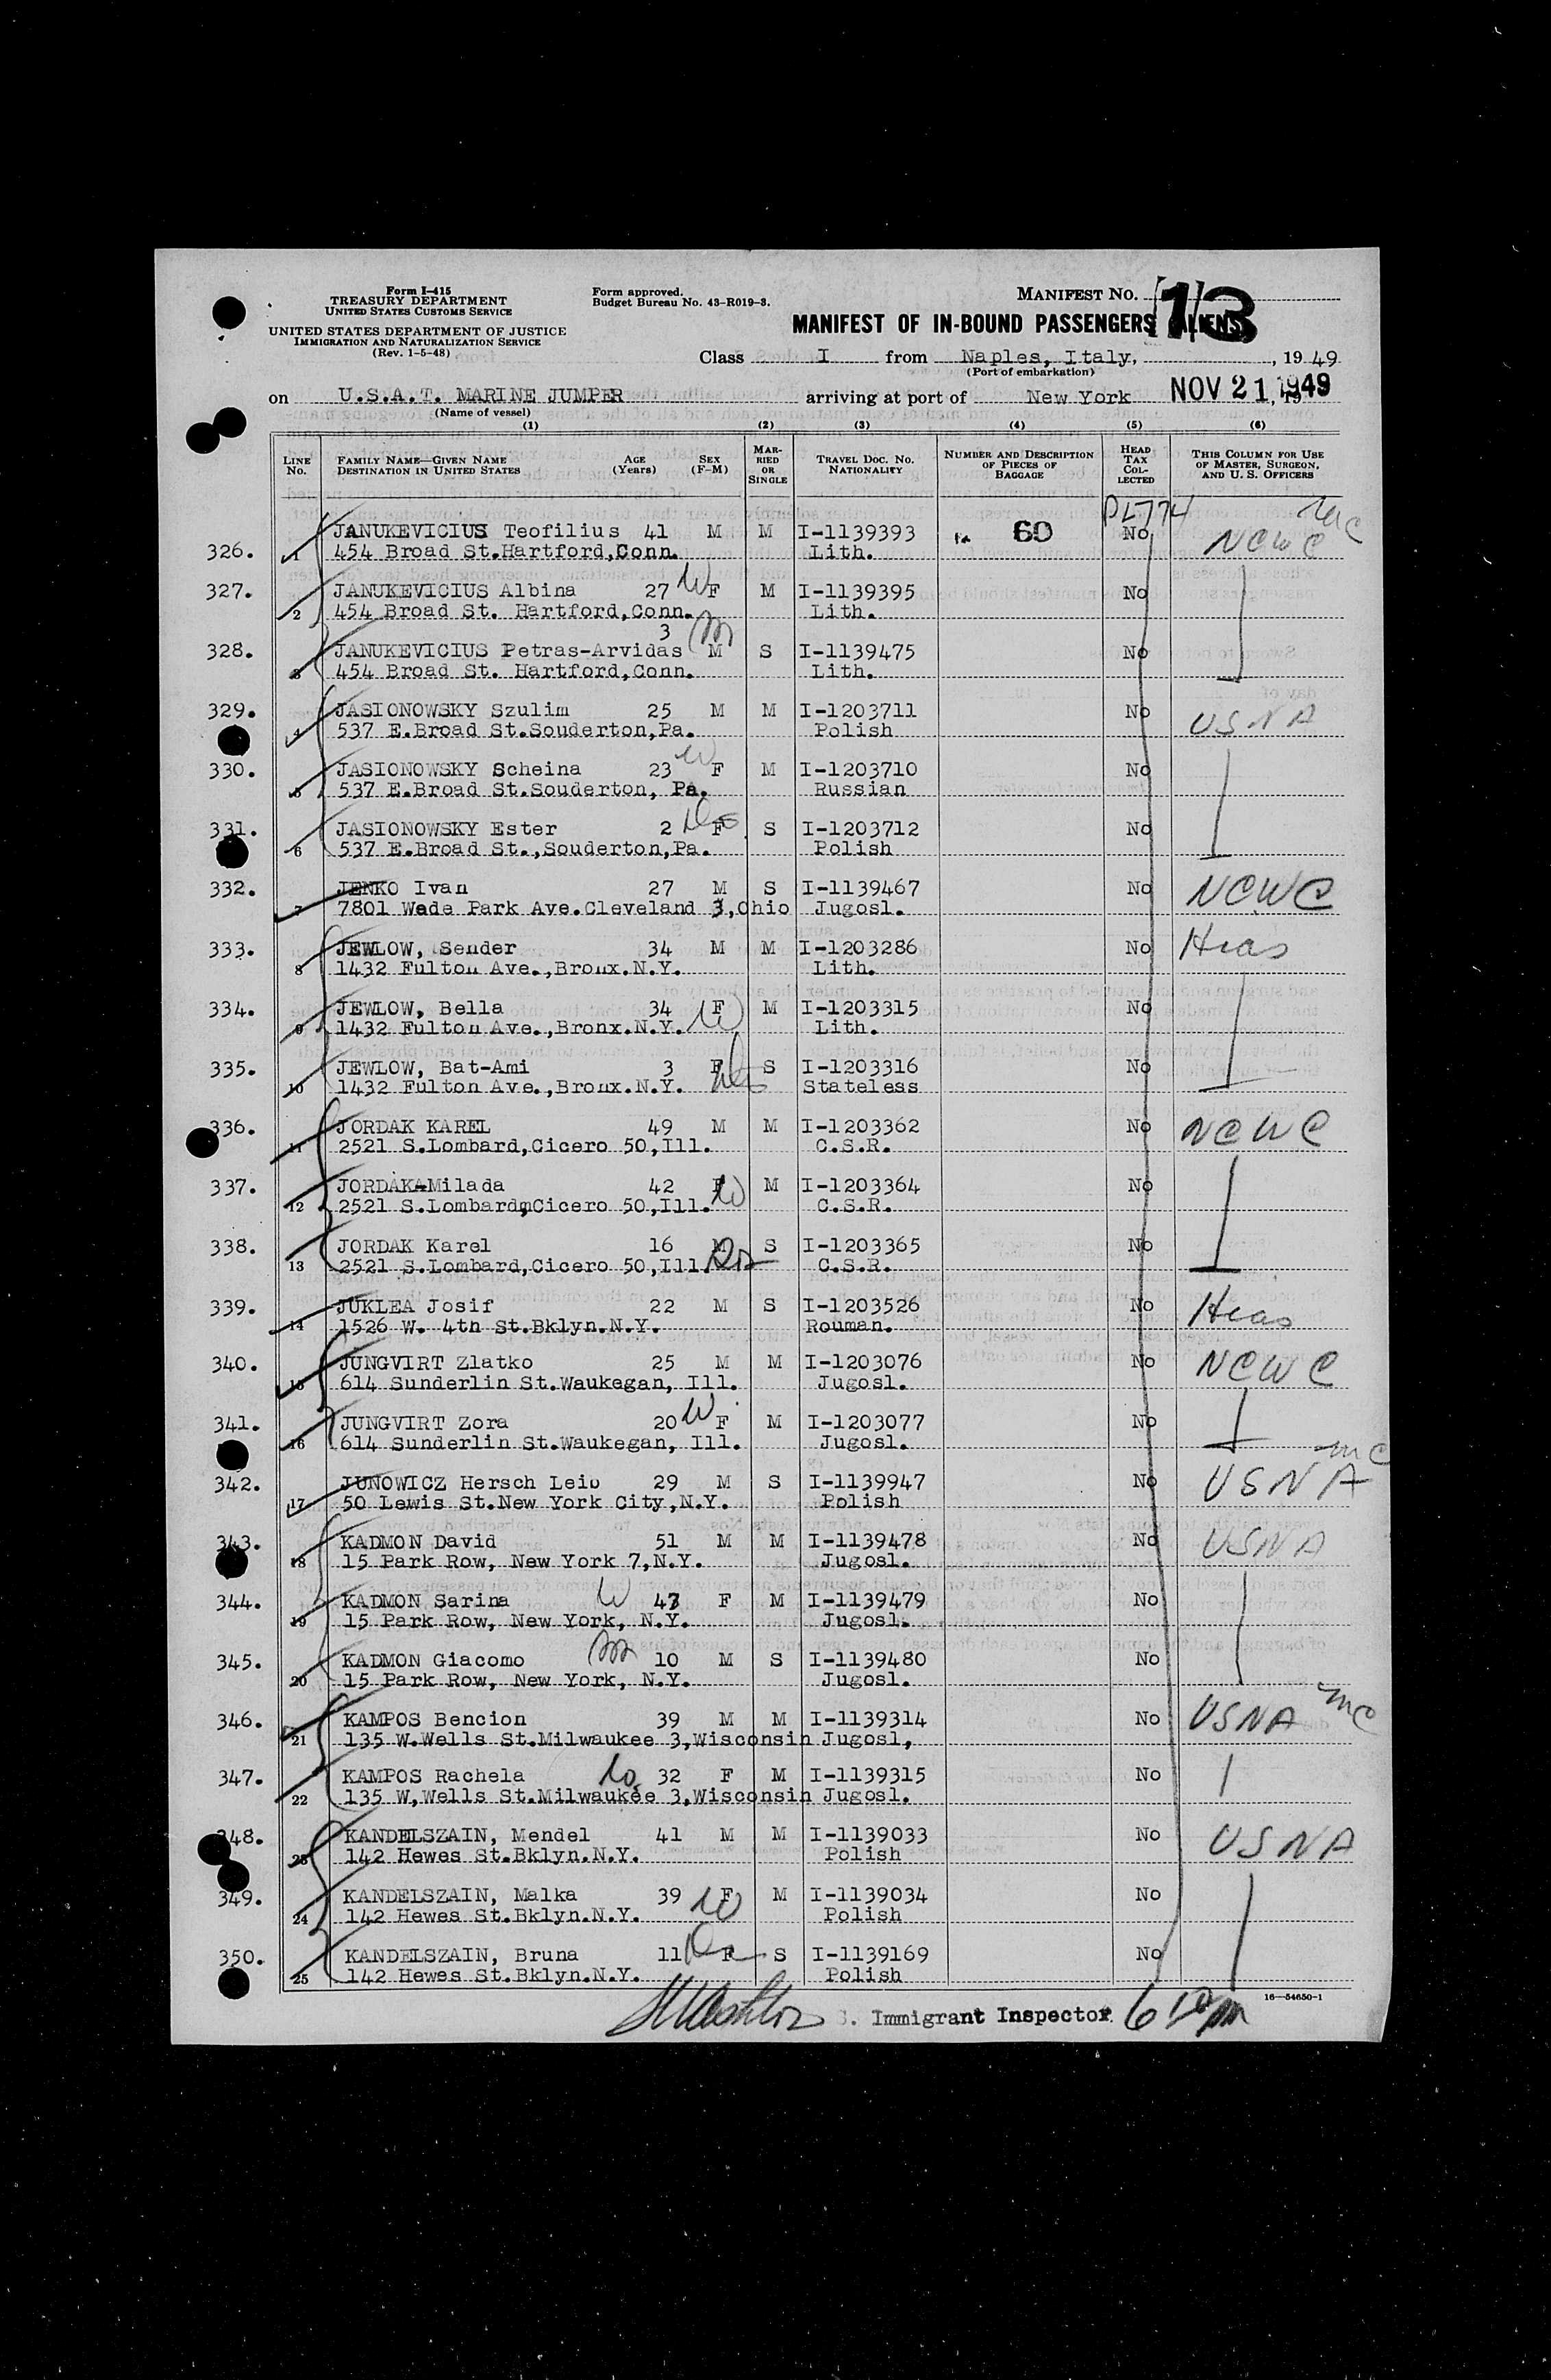 Form I-415
TREASURY DEPARTMENT
UNITED STATES CUSTOMS SERVICE
UNITED STATES DEPARTMENT OF JUSTICE
IMMIGRATION AND NATURALIZATION SERVICE
(Rev. 1-5-48)
Form approved.
Budget Bureau No. 43-R019-3.
MANIFEST No. 13
MANIFEST OF IN-BOUND PASSENGERS (ALIENS)
Class I from Naples, Italy, , 19 49
(Port of embarkation)
on U.S.A.T. MARINE JUMPER arriving at port of New York NOV 21, 1949
(Name of vessel)
(1) (2) (3) (4) (5) (6)
LINE No. FAMILY NAME—GIVEN NAME DESTINATION IN UNITED STATES AGE (Years) SEX (F-M) MARRIED OR SINGLE TRAVEL DOC. NO. NATIONALITY NUMBER AND DESCRIPTION OF PIECES OF BAGGAGE HEAD TAX COLLECTED THIS COLUMN FOR USE OF MASTER, SURGEON, AND U. S. OFFICERS
PL774
326. 1 JANUKEVICIUS Teofilius 41 M M I-1139393 60 No NCWC
454 Broad St.Hartford,Conn. Lith.
327. 2 JANUKEVICIUS Albina 27 W F M I-1139395 No
454 Broad St. Hartford,Conn. Lith.
328. 3 JANUKEVICIUS Petras-Arvidas 3 M S I-1139475 No
454 Broad St. Hartford,Conn. Lith.
329. 4 JASIONOWSKY Szulim 25 M M I-1203711 No USNA
537 E.Broad St.Souderton,Pa. Polish
330. 5 JASIONOWSKY Scheina 23 W F M I-1203710 No
537 E.Broad St.Souderton, Pa. Russian
331. 6 JASIONOWSKY Ester 2 F S I-1203712 No
537 E.Broad St.,Souderton,Pa. Polish
332. 7 JENKO Ivan 27 M S I-1139467 No NCWC
7801 Wade Park Ave.Cleveland 3,Ohio Jugosl.
333. 8 JEWLOW, Sender 34 M M I-1203286 No Hias
1432 Fulton Ave.,Bronx.N.Y. Lith.
334. 9 JEWLOW, Bella 34 F W M I-1203315 No
1432 Fulton Ave.,Bronx.N.Y. Lith.
335. 10 JEWLOW, Bat-Ami 3 F S I-1203316 No
1432 Fulton Ave.,Bronx.N.Y. Stateless
336. 11 JORDAK KAREL 49 M M I-1203362 No NCWC
2521 S.Lombard,Cicero 50,Ill. C.S.R.
337. 12 JORDAKA-Milada 42 F W M I-1203364 No
2521 S.Lombard,Cicero 50,Ill. C.S.R.
338. 13 JORDAK Karel 16 M S I-1203365 No
2521 S.Lombard,Cicero 50,Ill. C.S.R.
339. 14 JUKLEA Josif 22 M S I-1203526 No Hias
1526 W. 4th St.Bklyn.N.Y. Rouman.
340. 15 JUNGVIRT Zlatko 25 M M I-1203076 No NCWC
614 Sunderlin St.Waukegan, Ill. Jugosl.
341. 16 JUNGVIRT Zora 20 W F M I-1203077 No
614 Sunderlin St.Waukegan, Ill. Jugosl.
342. 17 JUNOWICZ Hersch Leib 29 M S I-1139947 No USNA mc
50 Lewis St.New York City,N.Y. Polish
343. 18 KADMON David 51 M M I-1139478 No USNA
15 Park Row, New York 7,N.Y. Jugosl.
344. 19 KADMON Sarina W 43 F M I-1139479 No
15 Park Row, New York, N.Y. Jugosl.
345. 20 KADMON Giacomo 10 M S I-1139480 No
15 Park Row, New York, N.Y. Jugosl.
346. 21 KAMPOS Bencion 39 M M I-1139314 No USNA mc
135 W.Wells St.Milwaukee 3,Wisconsin Jugosl,
347. 22 KAMPOS Rachela W 32 F M I-1139315 No
135 W,Wells St.Milwaukee 3,Wisconsin Jugosl.
348. 23 KANDELSZAIN, Mendel 41 M M I-1139033 No USNA
142 Hewes St.Bklyn.N.Y. Polish
349. 24 KANDELSZAIN, Malka 39 F W M I-1139034 No
142 Hewes St.Bklyn.N.Y. Polish
350. 25 KANDELSZAIN, Bruna 11 F S I-1139169 No
142 Hewes St.Bklyn.N.Y. Polish
16—54650-1
S. Immigrant Inspector